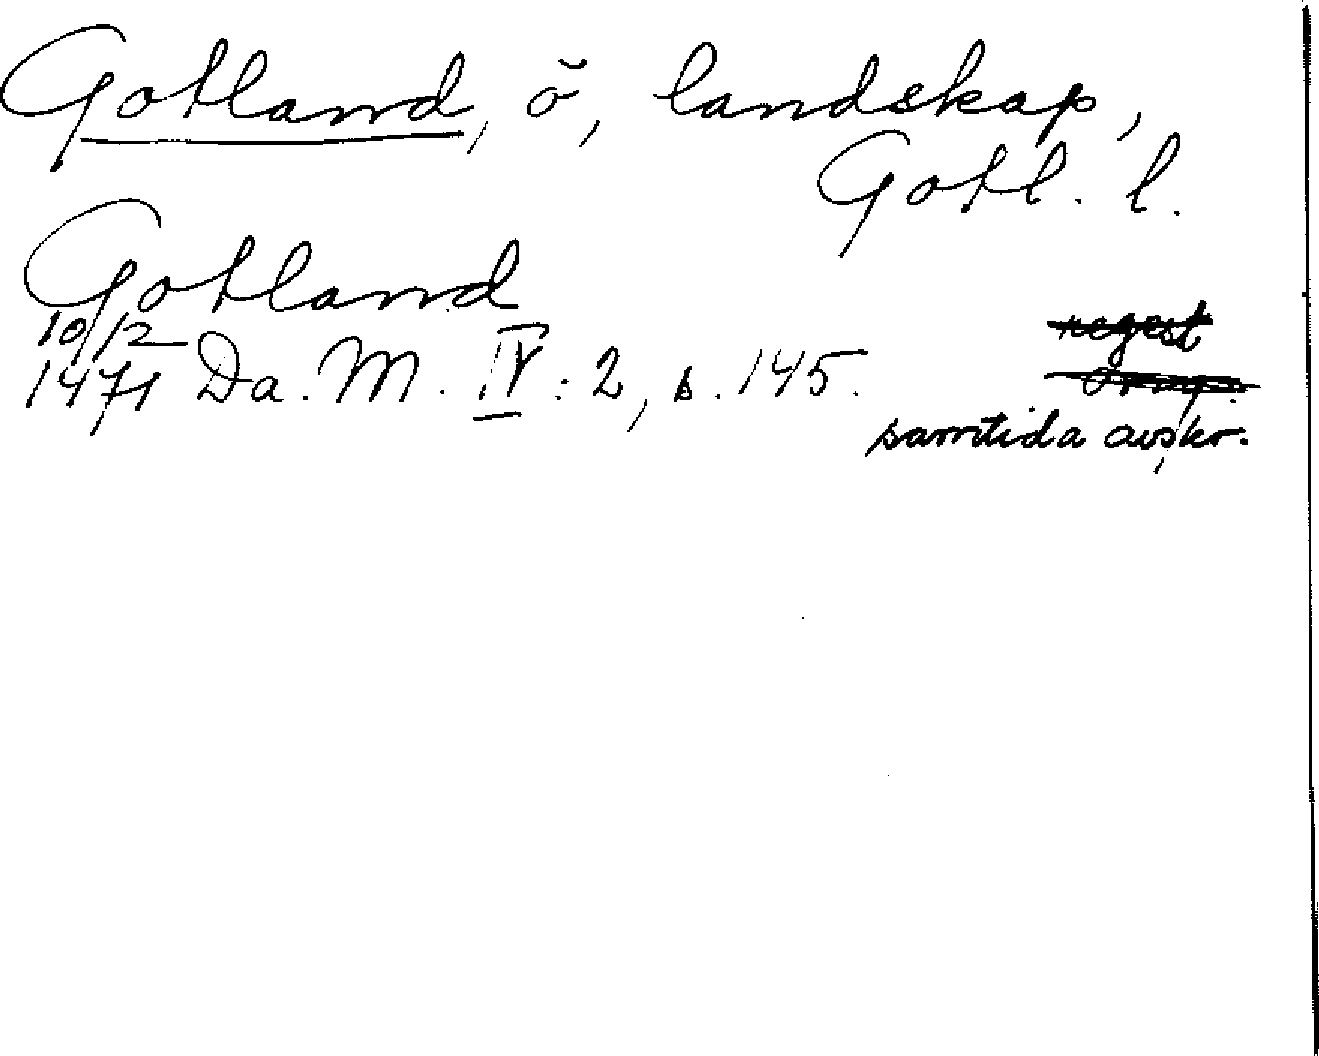 Gotland, ö, landskap,
Gotl. l.
Gotland
10/12
1471 Da. M. IV: 2, s. 145.
regest
samtida avskr.